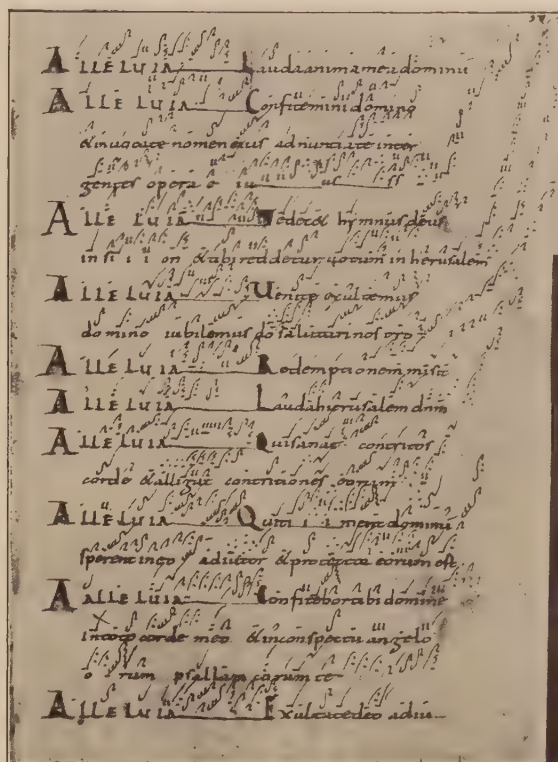 ALLELUIA Lauda anima mea dominū
ALLELUIA Confitemini domino
& inuocate nomen eius adnuntiate inter
gentes opera e iu us
ALLELUIA Te dec& hymnus deus
in si i i on & tibi reddetur uotum in herusalem
ALLELUIA Uenite exultemus
domino iubilemus dō salutari nostro
ALLELUIA Redemptionem misit
ALLELUIA Lauda hierusalem dnm
ALLELUIA Qui sanat contritos
corde & alligat contritiones eorum
ALLELUIA Qui ti i ment dominū
sperent in eo adiutor & protector eorum est
ALLELUIA Confitebor tibi domine
in toto corde meo & in conspectu angelo
o rum psallam
ALLELUIA Exultate deo adiu